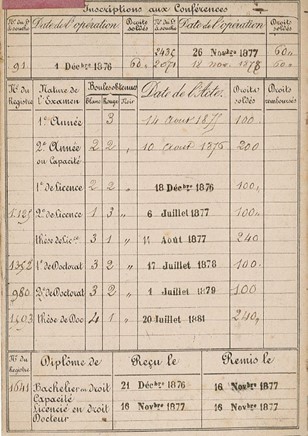 Inscriptions aux Conférences
Nº du R. à souche Date de l'opération Droits soldés Nº du R. à souche Date de l'opération Droits soldés
2435 26 Novbre 1877 60
91 1 Décbre 1876 60 2071 18 nov. 1878 60
Nº du Registre Nature de l'Examen Boules obtenues Blanc Rouge Noir Date de l'Acte Droits soldés Droits remboursés
1re Année 3 14 Aout 1875 100
2e Année ou Capacité 2 2 " 10 Aout 1876 200
1r de Licence 2 2 " 18 Décbre 1876 100
1.125 2e de Licence 1 3 " 6 Juillet 1877 100
Thèse de Lice 3 1 " 11 Août 1877 240
1352 1r de Doctorat 3 2 17 Juillet 1878 100
980 2e de Doctorat 3 2 " 1 Juillet 1879 100
1403 Thèse de Doc 4 1 " 20 Juillet 1881 240
Nº du Registre Diplôme de Reçu le Remis le
1641 Bachelier en droit 21 Décbre 1876 16 Novbre 1877
Capacité
Licencié en droit 16 Novbre 1877 16 Novbre 1877
Docteur